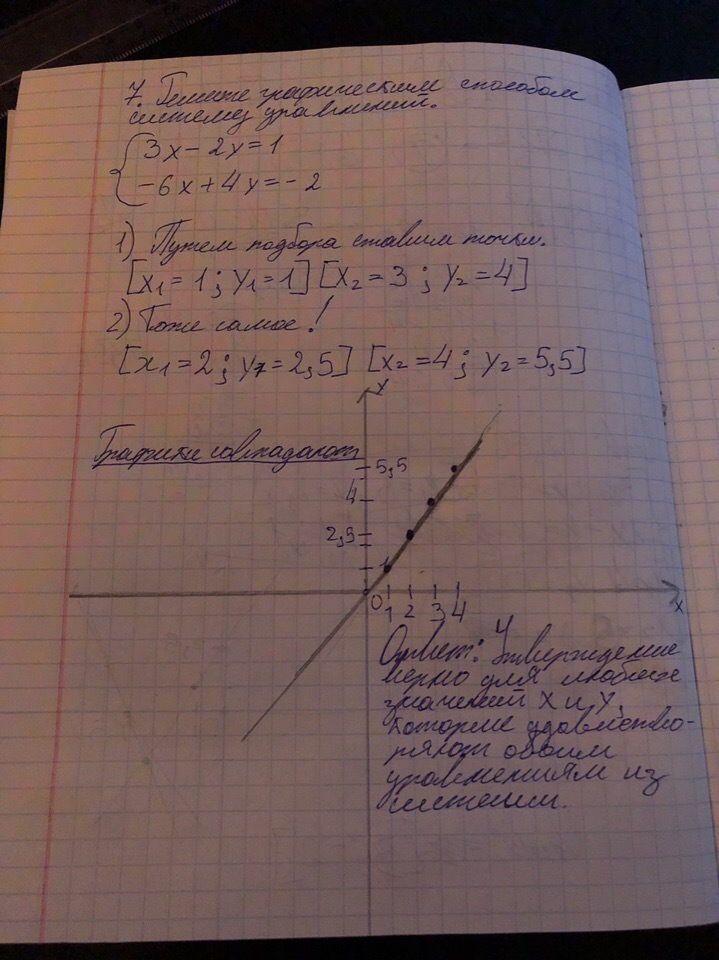 7. Решите графическим способом
систему уравнений.
3x - 2y = 1
-6x + 4y = -2
1) Путем подбора ставим точки.
[x₁ = 1; y₁ = 1] [x₂ = 3; y₂ = 4]
2) Тоже самое!
[x₁ = 2; y₁ = 2,5] [x₂ = 4; y₂ = 5,5]
y
Графики совпадают
5,5
4
2,5
1
0 1 2 3 4 x
Ответ: Утверждение
верно для любых
значений x и y,
которые удовлетво-
ряют обоим
уравнениям из
системы.